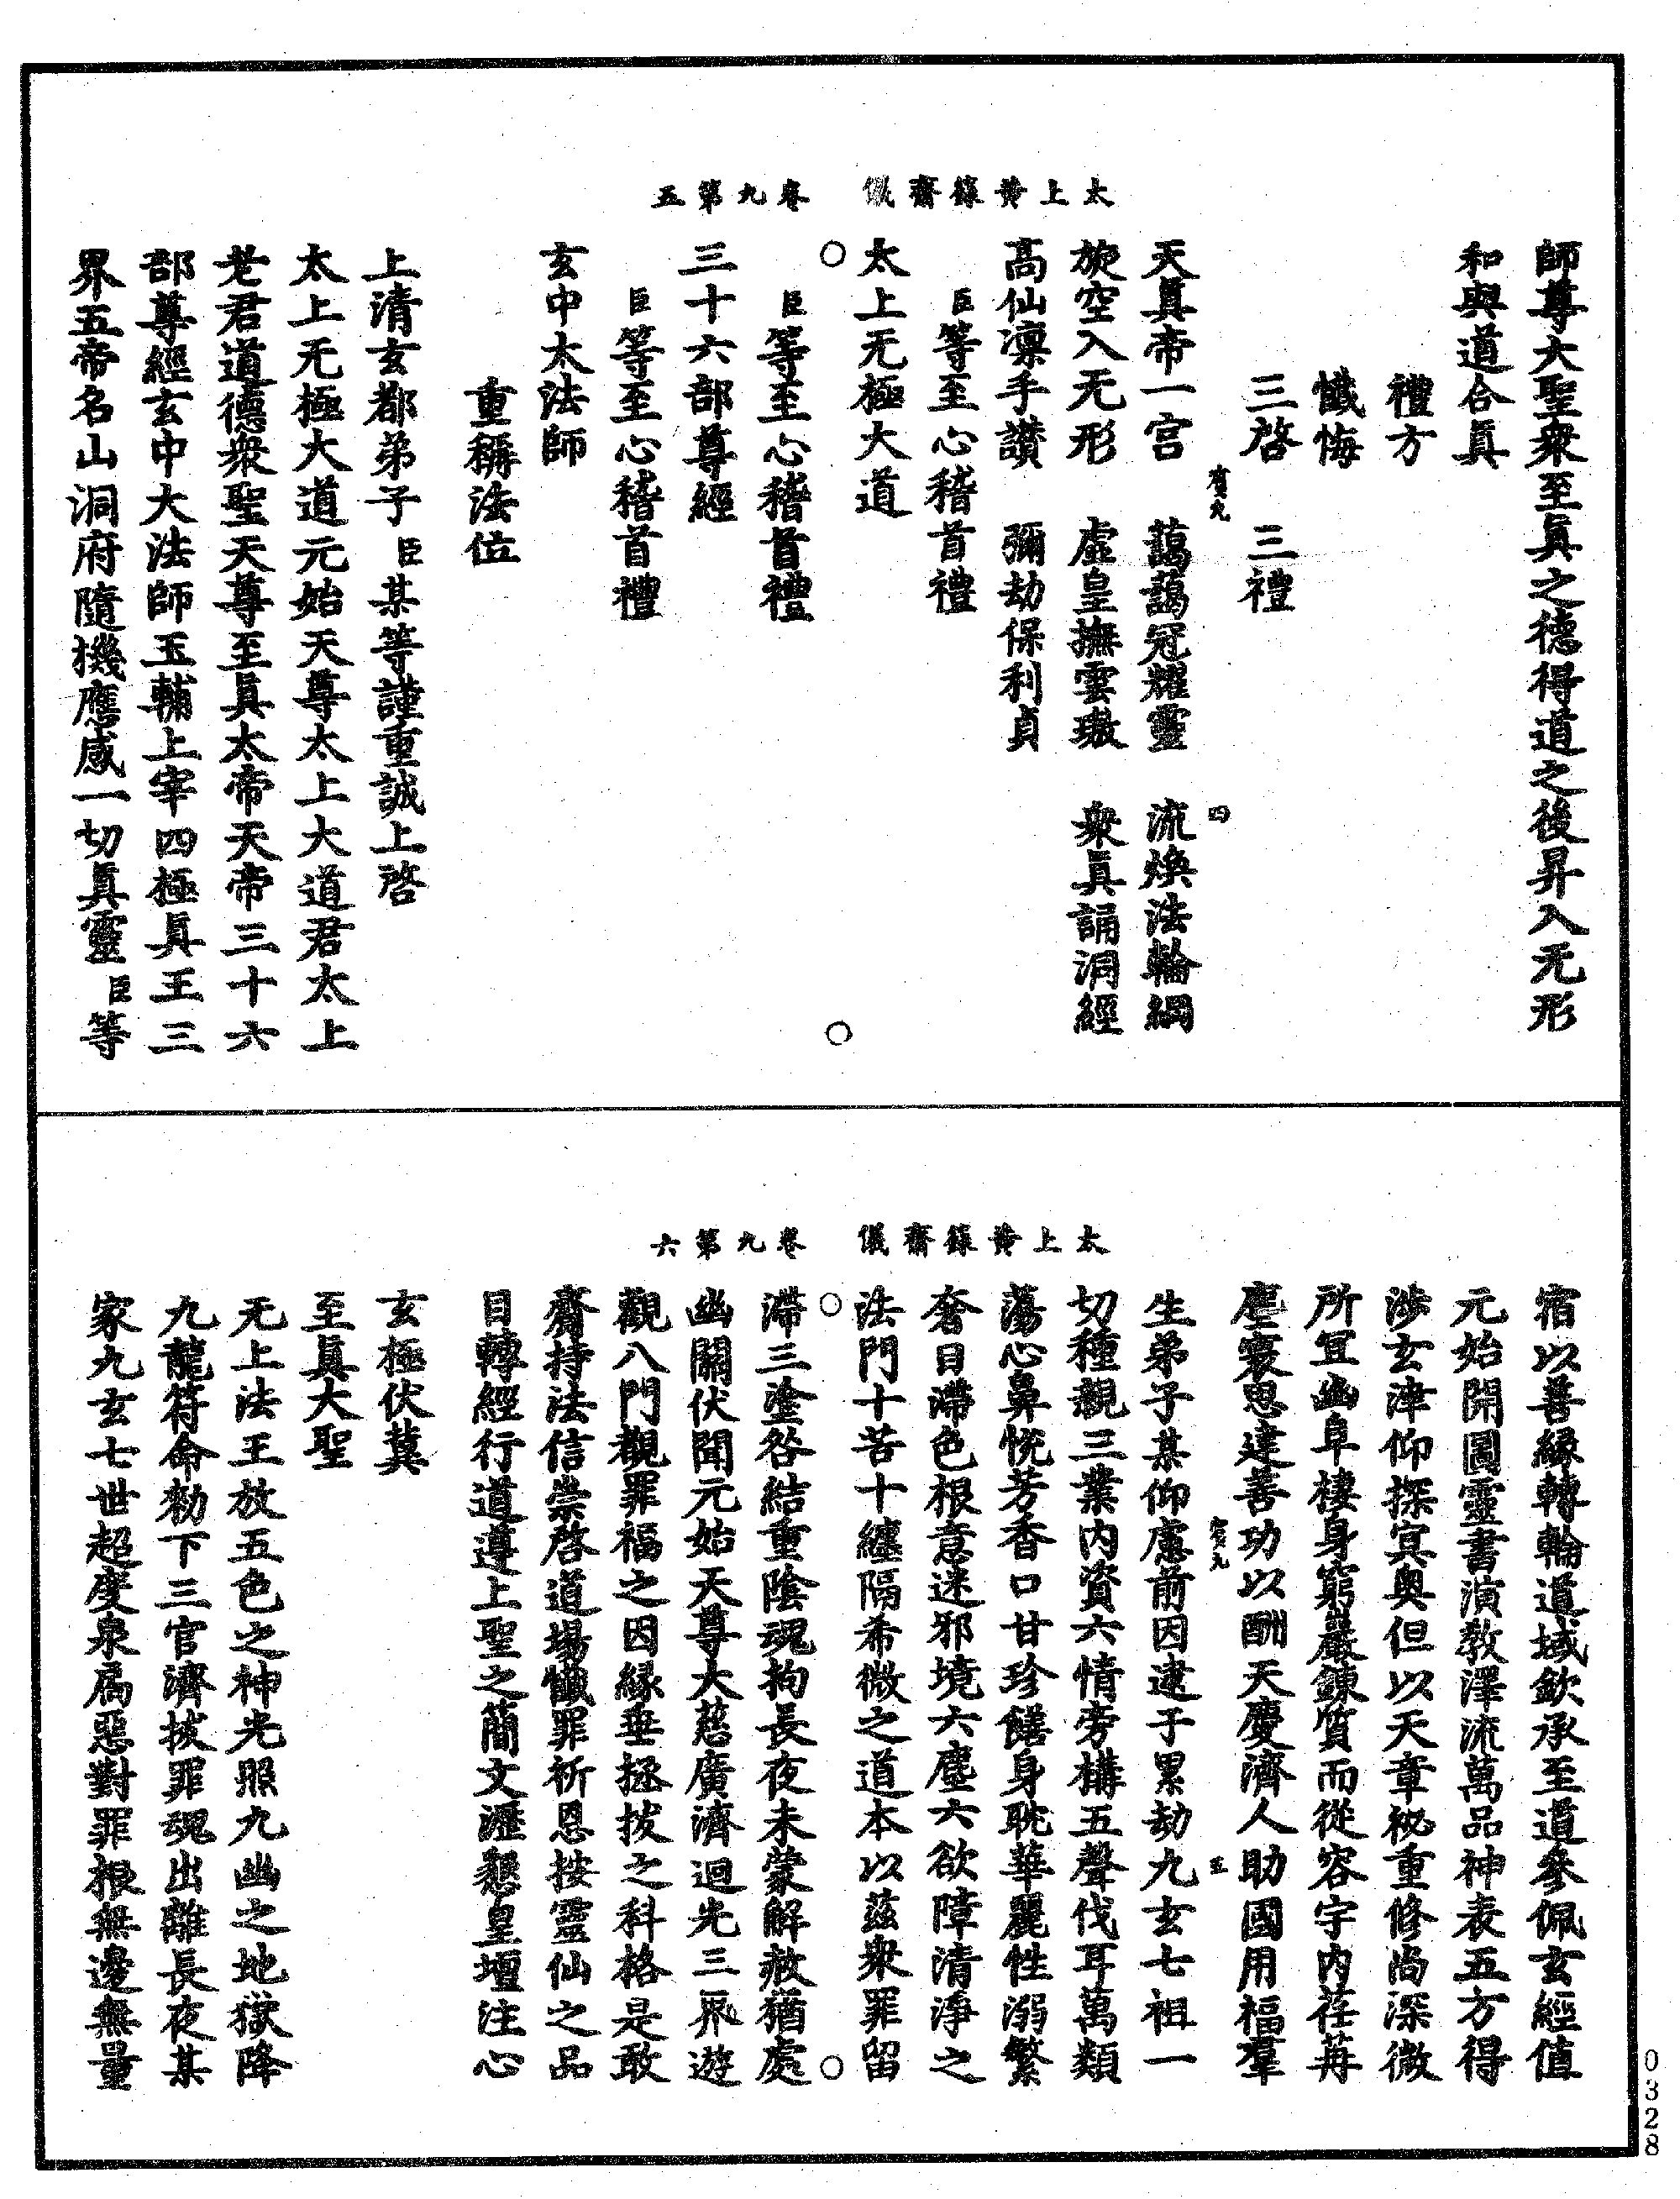 太上黃籙齋儀　卷九第五
師尊大聖衆至眞之德得道之後昇入无形
和與道合眞
禮方
懺悔
三啓　三禮
四
天眞帝一宮　藹藹冠耀靈　流煥法輪綱
旋空入无形　虛皇撫雲璈　衆眞誦洞經
高仙凛手讚　彌劫保利貞
臣等至心稽首禮
太上无極大道
臣等至心稽首禮
三十六部尊經
臣等至心稽首禮
玄中太法師
重稱法位
上清玄都弟子臣某等謹重誠上啓
太上无極大道元始天尊太上大道君太上
老君道德衆聖天尊至眞太帝天帝三十六
部尊經玄中大法師玉輔上宰四極眞王三
界五帝名山洞府隨機應感一切眞靈臣等
太上黃籙齋儀　卷九第六
宿以善緣轉輪道域欽承至道參佩玄經值
元始開圖靈書演教澤流萬品神表五方得
涉玄津仰探冥奧但以天章祕重修尚深微
所冝幽阜棲身窮巖鍊質而從容宇内荏苒
塵寰思建善功以酬天慶濟人助國用福羣
五
生弟子某仰慮前因逮于累劫九玄七祖一
切種親三業内資六情旁構五聲伐耳萬類
蕩心鼻悅芳香口甘珍饍身耽華麗性溺繁
奢日滯色根意迷邪境六塵六欲障清淨之
法門十苦十纏隔希微之道本以茲衆罪留
滯三塗咎結重陰魂拘長夜未蒙解赦猶處
幽關伏聞元始天尊大慈廣濟迴光三界遊
觀八門覩罪福之因緣垂拯拔之科格是敢
齋持法信崇啓道場懺罪祈恩按靈仙之品
目轉經行道遵上聖之簡文瀝懇皇壇注心
玄極伏冀
至眞大聖
无上法王放五色之神光照九幽之地獄降
九龍符命勑下三官濟拔罪魂出離長夜某
家九玄七世超度泉扃惡對罪根無邊無量
0328